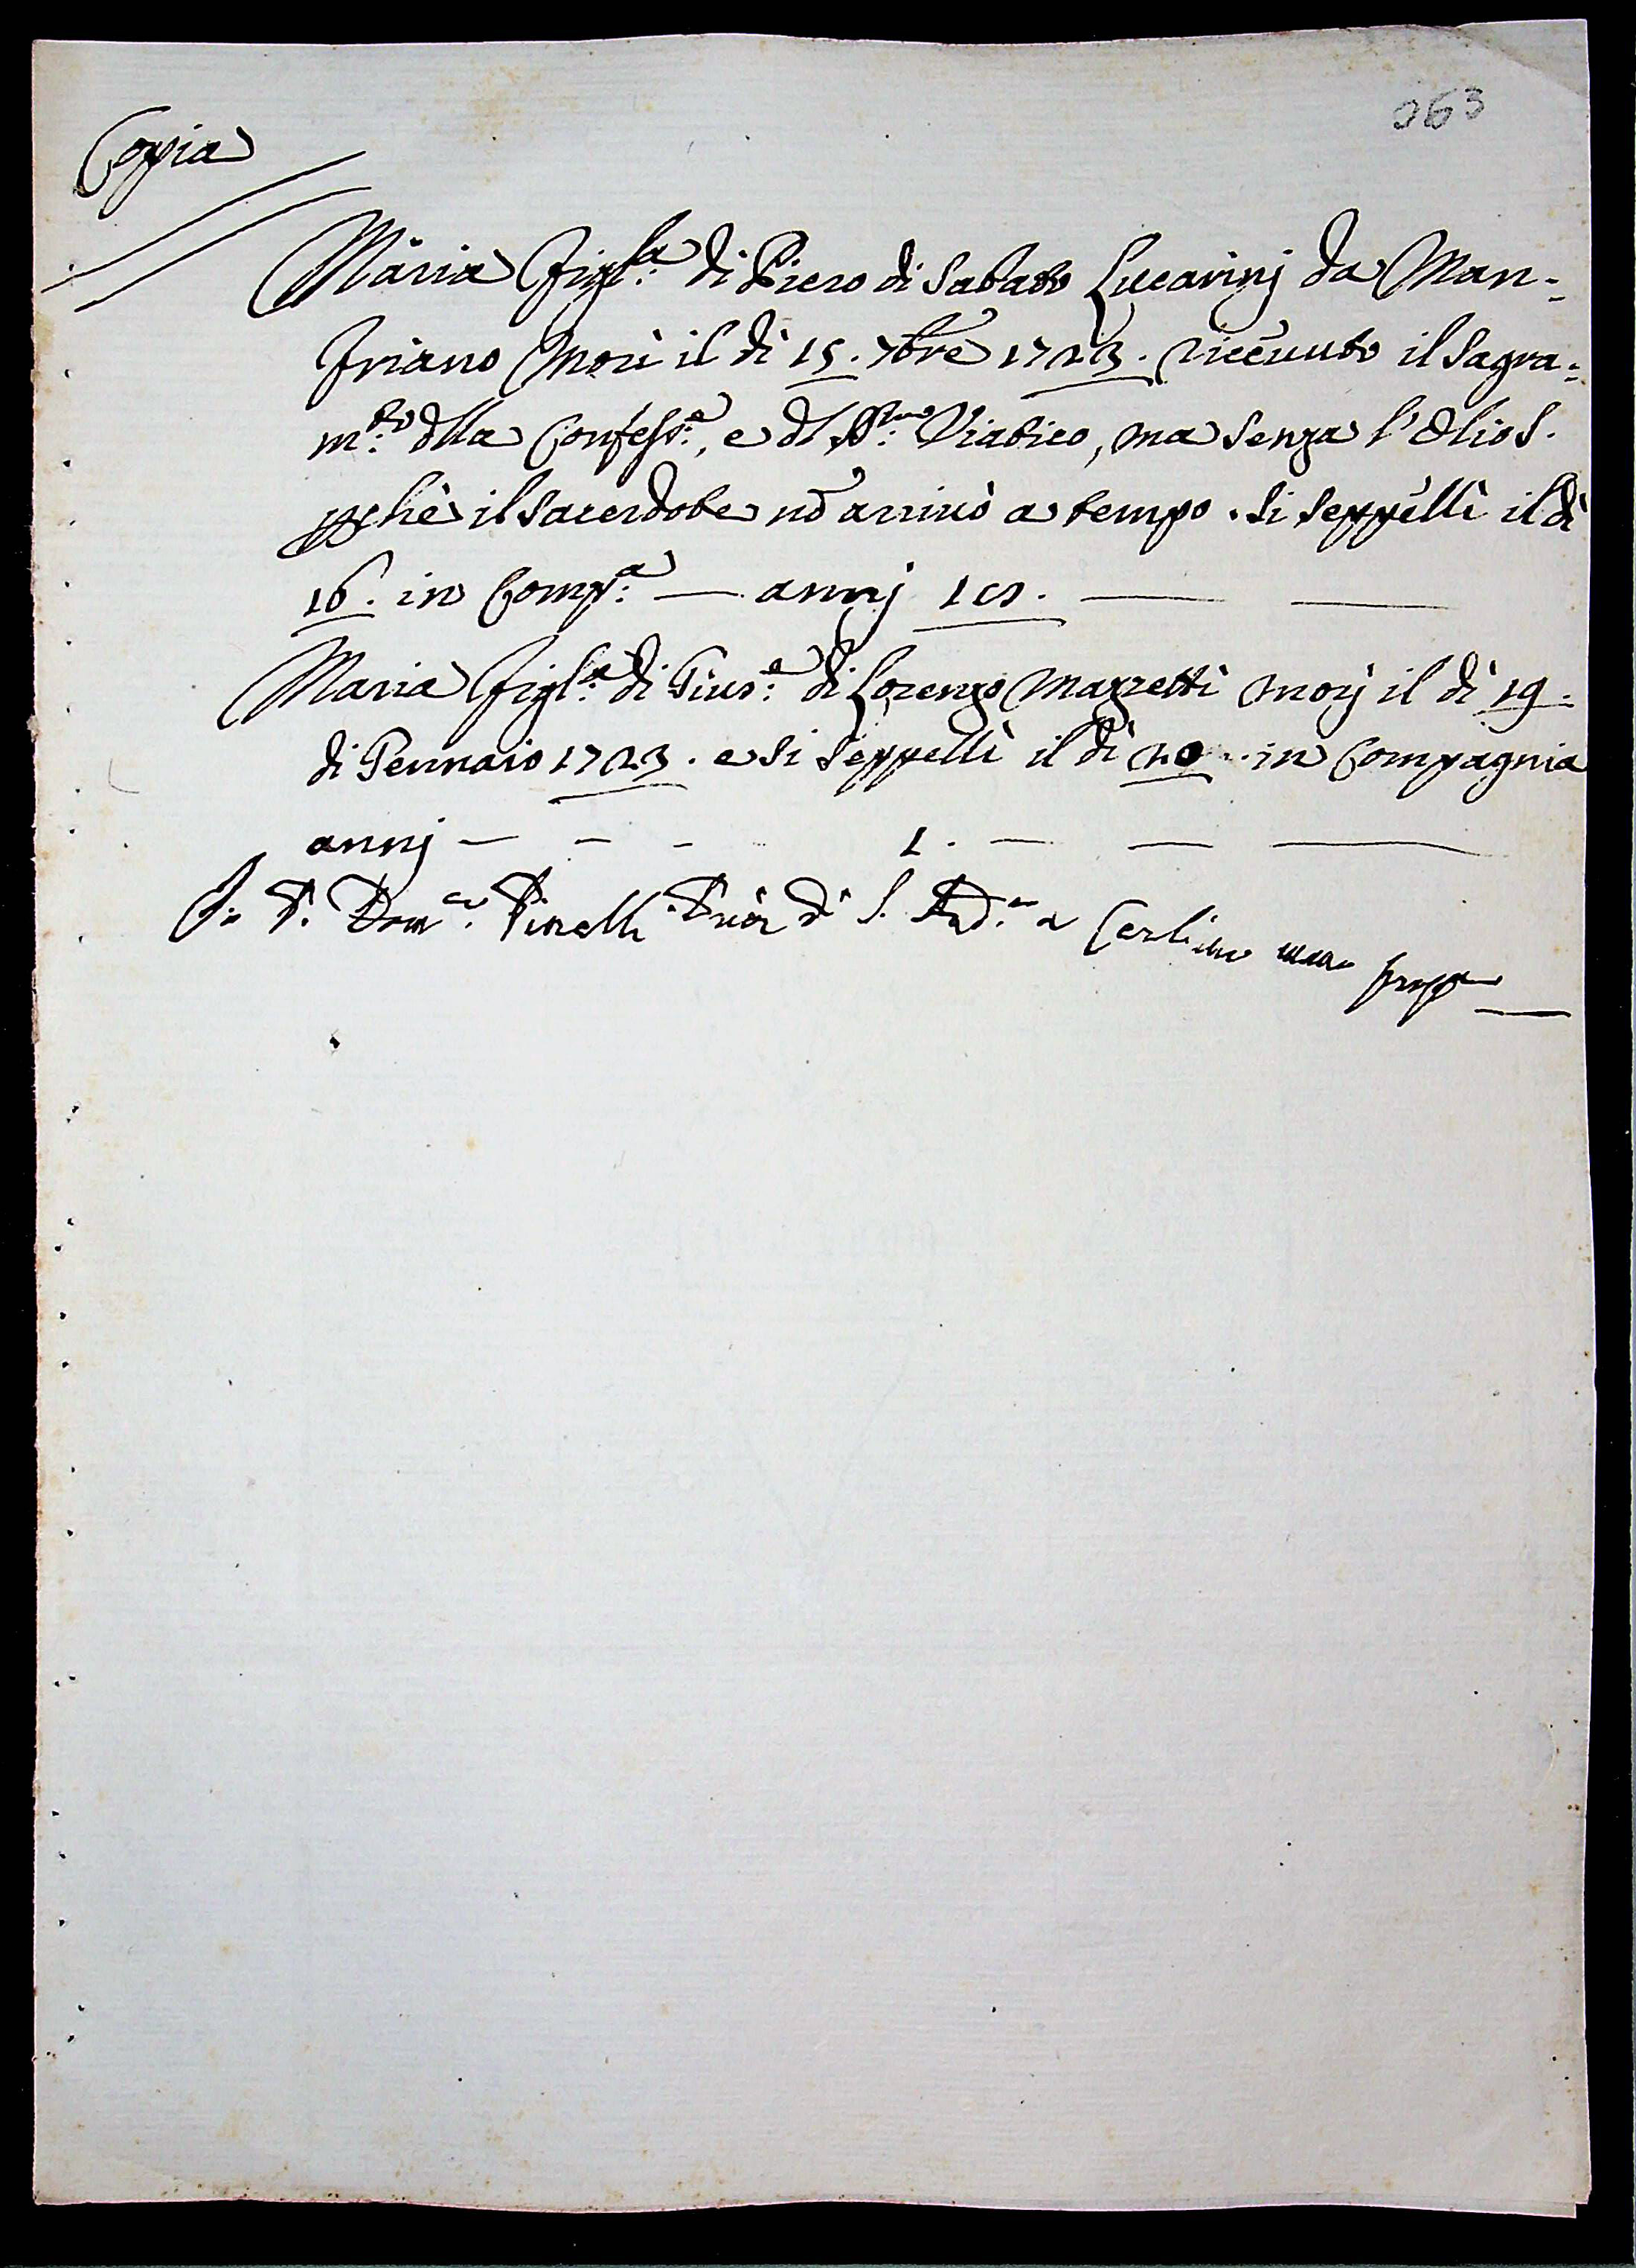 263
Coppia
Maria figl.la di Piero di Sabatto Lucarinj da Man=
friano morì il dì 15. 7bre 1723. riceuuto il Sagra=
m.to dlla Confess.e, e dl SS.mo Viatico, ma senza l'Olio S.
pchè il Sacerdote nō arriuò a tempo. Si seppellì il dì
16. in Comp.a — annj
Maria figl.a di Gius.e di Lorenzo Magzetti morj il dì 19.
di Gennaio 1723. e si seppellì il dì 20. in Compagnia
annj — - - 1. — — —
Io P. Dom.co Pinelli Prior di S. And.a a Cerliano mao propa —